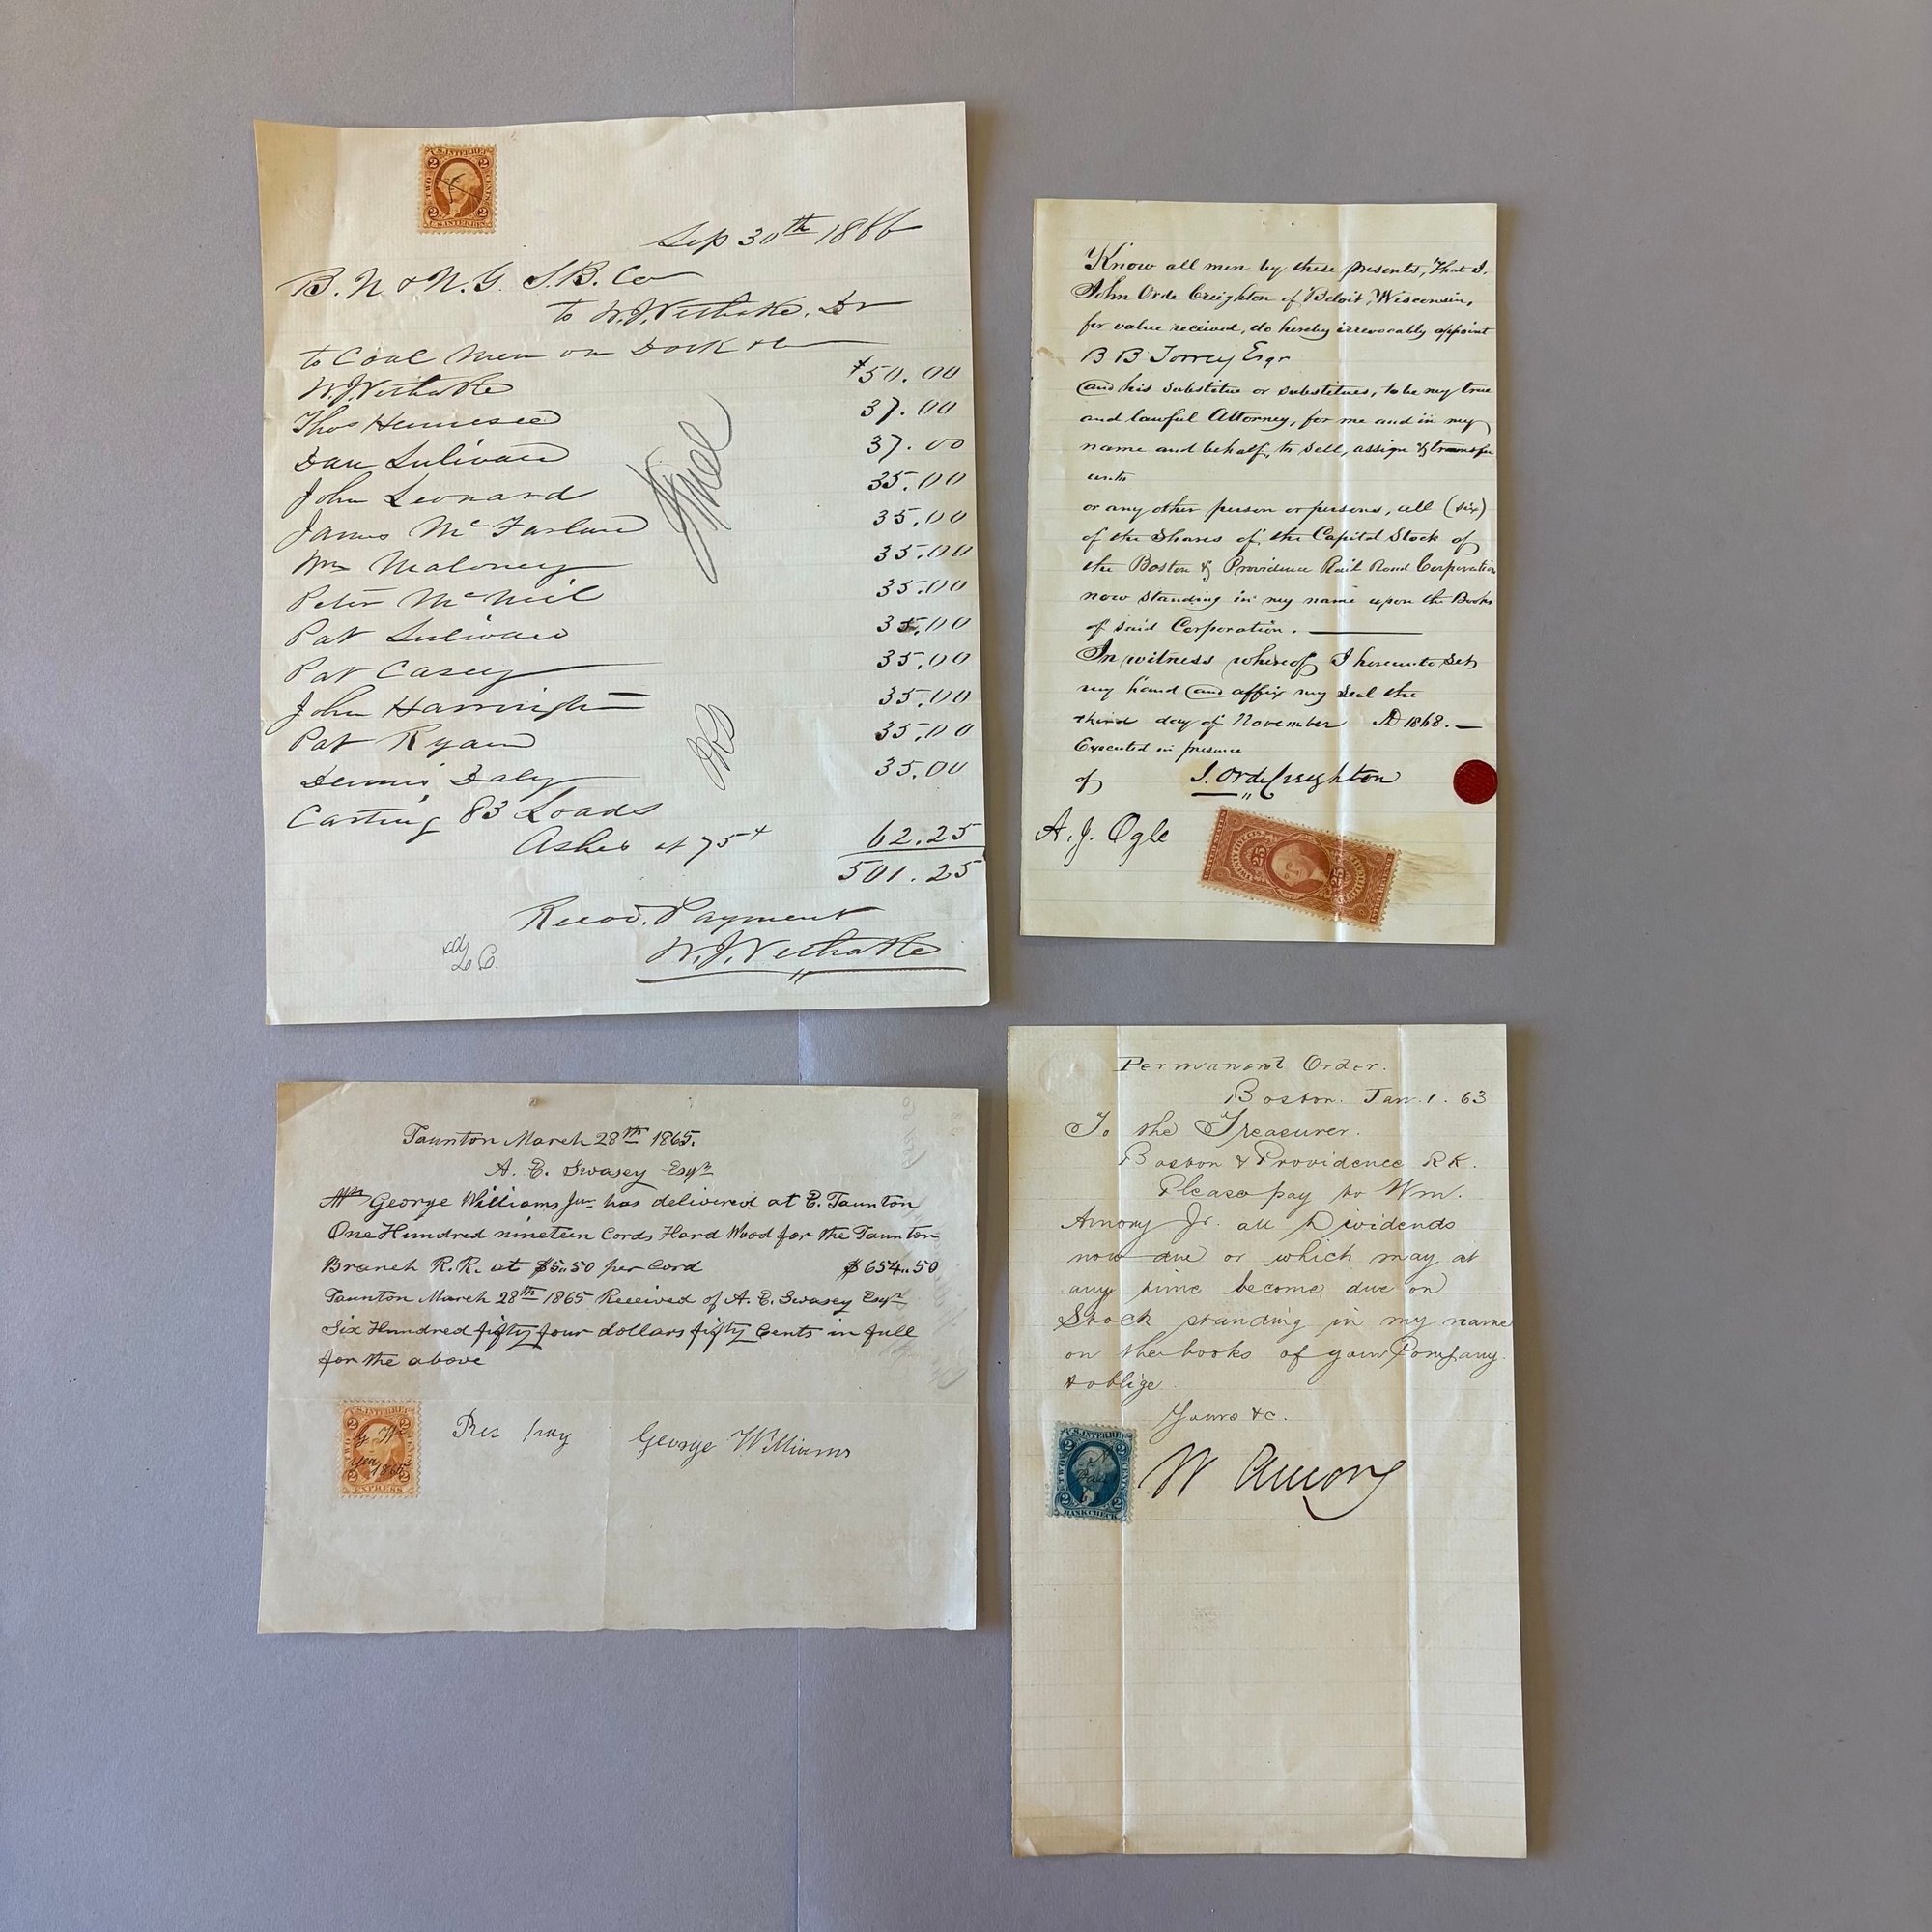 U.S. INTER. REV.
2 2
TWO CENTS
2 2
U.S. INTER. REV.
Sep 30th 1866
B. N & N. Y. S. B. Co
to W. J. Vethake. Dr
to Coal Men on Dock &c
W. J. Vethake $50.00
Thos Hennesee 37.00
Dan Sulivan 37.00
John Leonard 35.00
James McFarland 35.00
Wm Maloney 35.00
Peter McNeil 35.00
Pat Sulivan 35.00
Pat Casey 35.00
John Harrington 35.00
Pat Ryan 35.00
Dennis Daley 35.00
Carting 83 Loads
Ashes at 75 62.25
501.25
Recvd. Payment
W. J. Vethake
Know all men by these presents, That I,
John Orde Creighton of Beloit, Wisconsin,
for value received, do hereby irrevocably appoint
B B Torrey Esqr
and his substitue or substitues, to be my true
and lawful Attorney, for me and in my
name and behalf, to sell, assign & transfer
unto
or any other person or persons, all (six)
of the Shares of the Capital Stock of
the Boston & Providence Rail Road Corporation
now standing in my name upon the Books
of said Corporation.
In witness whereof I hereunto set
my hand and affix my Seal the
third day of November AD 1868.
Executed in presence
of J. Orde Creighton
A. J. Ogle
25 25
Taunton March 28th 1865.
A. E. Swasey Esqr
Mr George Williams Jur has delivered at E. Taunton
One Hundred nineteen Cords Hard Wood for the Taunton
Branch R. R. at $5..50 per Cord $654..50
Taunton March 28th 1865 Received of A. E. Swasey Esqr
Six Hundred fifty four dollars fifty Cents in full
for the above
U.S. INTER. REV.
2 2
TWO CENTS
G W
1865
2 2
EXPRESS
Rec pay George Williams
Permanent Order.
Boston. Jan. 1. 63
To the Treasurer.
Boston & Providence RR.
Please pay to Wm.
Amory Jr. all Dividends
now due or which may at
any time become due on
Stock standing in my name
on the books of your Company
& oblige
Yours &c.
W Amory
U.S. INTER. REV.
2 2
TWO CENTS
2 2
BANK CHECK